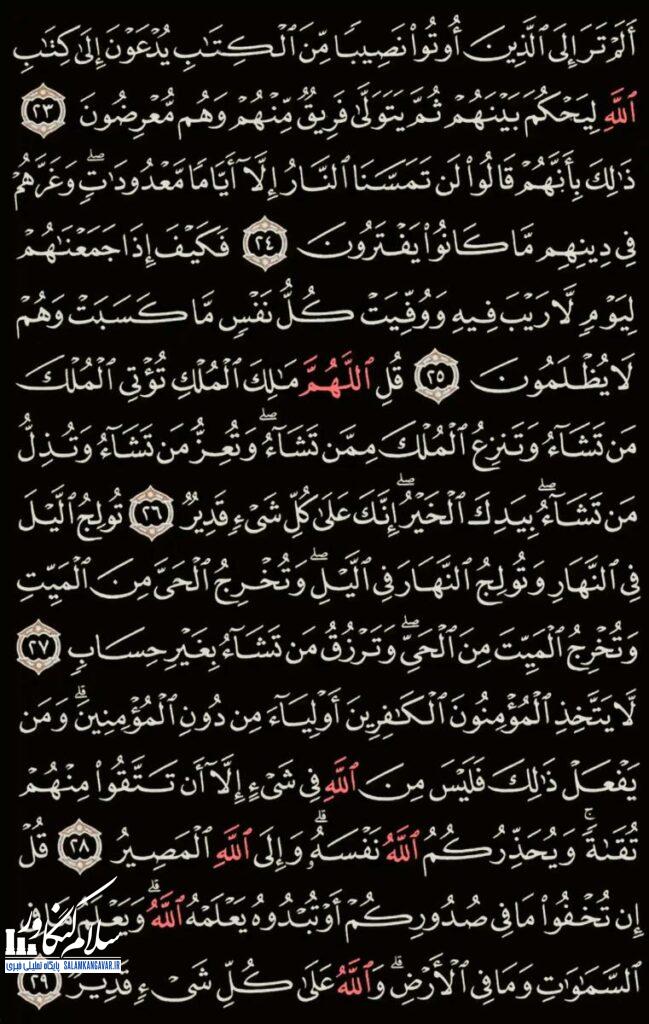 أَلَمْ تَرَ إِلَى ٱلَّذِينَ أُوتُوا۟ نَصِيبًا مِّنَ ٱلْكِتَٰبِ يُدْعَوْنَ إِلَىٰ كِتَٰبِ
ٱللَّهِ لِيَحْكُمَ بَيْنَهُمْ ثُمَّ يَتَوَلَّىٰ فَرِيقٌ مِّنْهُمْ وَهُم مُّعْرِضُونَ ٢٣
ذَٰلِكَ بِأَنَّهُمْ قَالُوا۟ لَن تَمَسَّنَا ٱلنَّارُ إِلَّآ أَيَّامًا مَّعْدُودَٰتٍ ۖ وَغَرَّهُمْ
فِى دِينِهِم مَّا كَانُوا۟ يَفْتَرُونَ ٢٤ فَكَيْفَ إِذَا جَمَعْنَٰهُمْ
لِيَوْمٍ لَّا رَيْبَ فِيهِ وَوُفِّيَتْ كُلُّ نَفْسٍ مَّا كَسَبَتْ وَهُمْ
لَا يُظْلَمُونَ ٢٥ قُلِ ٱللَّهُمَّ مَٰلِكَ ٱلْمُلْكِ تُؤْتِى ٱلْمُلْكَ
مَن تَشَآءُ وَتَنزِعُ ٱلْمُلْكَ مِمَّن تَشَآءُ ۖ وَتُعِزُّ مَن تَشَآءُ وَتُذِلُّ
مَن تَشَآءُ ۖ بِيَدِكَ ٱلْخَيْرُ ۖ إِنَّكَ عَلَىٰ كُلِّ شَىْءٍ قَدِيرٌ ٢٦ تُولِجُ ٱلَّيْلَ
فِى ٱلنَّهَارِ وَتُولِجُ ٱلنَّهَارَ فِى ٱلَّيْلِ ۖ وَتُخْرِجُ ٱلْحَىَّ مِنَ ٱلْمَيِّتِ
وَتُخْرِجُ ٱلْمَيِّتَ مِنَ ٱلْحَىِّ ۖ وَتَرْزُقُ مَن تَشَآءُ بِغَيْرِ حِسَابٍ ٢٧
لَّا يَتَّخِذِ ٱلْمُؤْمِنُونَ ٱلْكَٰفِرِينَ أَوْلِيَآءَ مِن دُونِ ٱلْمُؤْمِنِينَ ۖ وَمَن
يَفْعَلْ ذَٰلِكَ فَلَيْسَ مِنَ ٱللَّهِ فِى شَىْءٍ إِلَّآ أَن تَتَّقُوا۟ مِنْهُمْ
تُقَىٰةً ۗ وَيُحَذِّرُكُمُ ٱللَّهُ نَفْسَهُۥ ۗ وَإِلَى ٱللَّهِ ٱلْمَصِيرُ ٢٨ قُلْ
إِن تُخْفُوا۟ مَا فِى صُدُورِكُمْ أَوْ تُبْدُوهُ يَعْلَمْهُ ٱللَّهُ ۗ وَيَعْلَمُ مَا فِى
ٱلسَّمَٰوَٰتِ وَمَا فِى ٱلْأَرْضِ ۗ وَٱللَّهُ عَلَىٰ كُلِّ شَىْءٍ قَدِيرٌ ٢٩
سلام کنگاور
پایگاه تحلیلی خبری SALAMKANGAVAR.IR